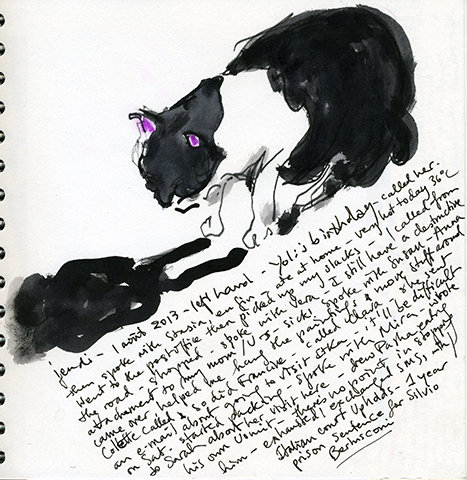 jeudi - 1 août 2013 - left hand - Yoli's birthday - called her.
then spoke with Stasia, en fin - ate at home - very hot today 36°C
Went to the post office then picked up my slacks - I called from
the road - shopped - spoke with Vera I still have a destructive
attachment to my mom/J I. sick - spoke with Susan - Anna
came over helped me hang the paintings & move stuff around
Colette called & so did Francine - called Clark - she sent
an e-mail about going to visit Etka - it'll be difficult
on Sat. started packing - spoke with Mira - wrote
to Sarah about her visit here - drew Pasha eating
his own Vomit - there's no point in stopping
him - exhausted! exchanged SMS, the
Italian court Upholds - 1 year
prison sentence for Silvio
Berlusconi